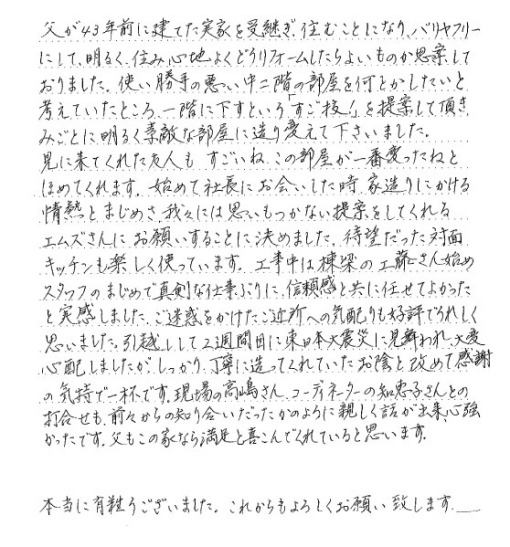 父が43年前に建てた実家を受継ぎ、住むことになり、バリヤフリー
にして、明るく、住み心地よくどうリフォームしたらよいものか思案して
おりました。使い勝手の悪い中二階の部屋を何とかしたいと
考えていたところ、一階に下すという「すご技!」を提案して頂き
みごとに明るく素敵な部屋に造り変えて下さいました。
見に来てくれた友人も すごいね、この部屋が一番変ったねと
ほめてくれます。始めて社長にお会いした時、家造りにかける
情熱とまじめさ、我々には思いもつかない提案をしてくれる
エムズさんにお願いすることに決めました。待望だった対面
キッチンも楽しく使っています。工事中は棟梁の工藤さん始め
スタッフのまじめで真剣な仕事ぶりに、信頼感と共に任せてよかった
と実感しました。ご迷惑をかけたご近所への気配りも好評でうれしく
思いました。引越しして2週間目に東日本大震災に見舞われ、大変
心配しましたが、しっかり、丁寧に造ってくれていたお陰と改めて感謝
の気持で一杯です。現場の高嶋さん、コーディネーターの知恵子さんとの
打合せも、前々からの知り合いだったかのように親しく話が出来、心強
かったです。父もこの家なら満足と喜こんでくれていると思います。
本当に有難うございました。これからもよろしくお願い致します。